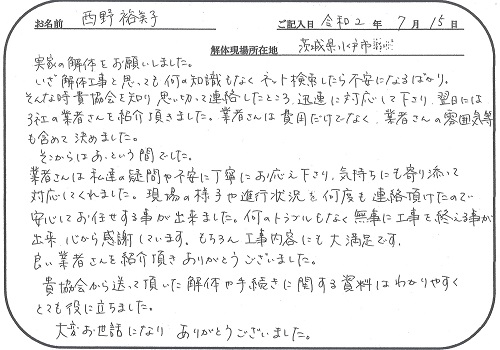 お名前 西野 裕美子 ご記入日 令和2年7月15日
解体現場所在地 茨城県水戸市
実家の解体をお願いしました。
いざ解体工事と思っても何の知識もなくネット検索したら不安になるばかり。
そんな時貴協会を知り思い切って連絡したところ、迅速に対応して下さり、翌日には
3社の業者さんを紹介頂きました。業者さんは費用だけでなく、業者さんの雰囲気等
も含めて決めました。
そこからはあっという間でした。
業者さんは私達の疑問や不安に丁寧にお応え下さり、気持ちにも寄り添いて
対応してくれました。現場の様子や進行状況を何度も連絡頂けたので
安心してお任せする事が出来ました。何のトラブルもなく無事に工事を終える事が
出来、心から感謝しています。もちろん工事内容にも大満足です。
良い業者さんを紹介頂きありがとうございました。
貴協会から送って頂いた解体や手続きに関する資料はわかりやすく
とても役に立ちました。
大変お世話になり ありがとうございました。